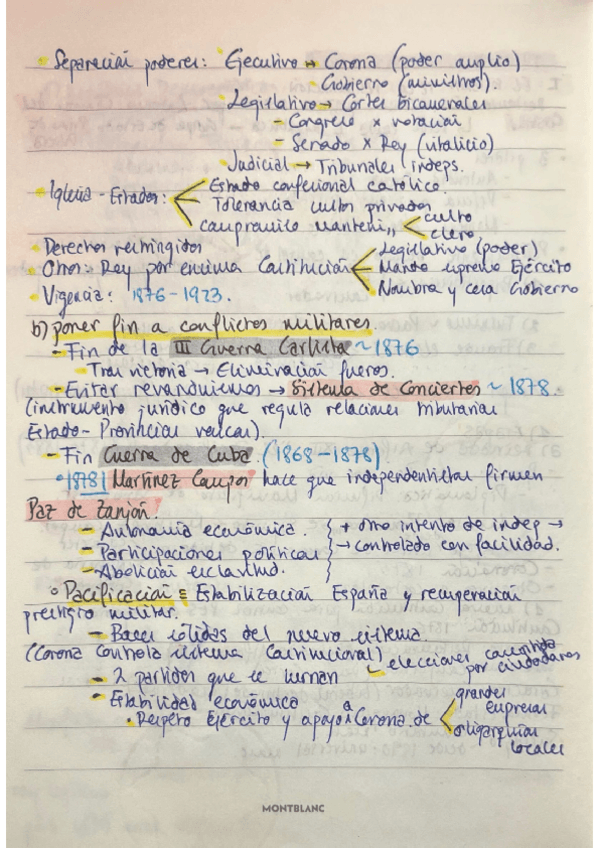 Separación poderes: Ejecutivo → Corona (poder amplio)
Gobierno (ministros).
Legislativo → Cortes bicamerales
- Congreso x votación
- Senado x Rey (vitalicio)
Judicial → Tribunales indeps.
Iglesia - Estados: Estado confesional católico.
Tolerancia cultos privados
compromiso manten,, culto
clero
Derechos restringidos
Otros: Rey por encima Constitución Legislativo (poder)
Mando supremo Ejército
Nombra y cesa Gobierno
Vigencia: 1876-1923.
b) poner fin a conflictos militares.
- Fin de la III Guerra Carlista ~ 1876
- Tras victoria → Eliminación fueros.
- Evitar revanchismos → Sistema de Conciertos ~ 1878
(instrumento jurídico que regula relaciones tributarias
Estado - Provincias vascas).
- Fin Guerra de Cuba (1868-1878)
1878| Martínez Campos hace que independentistas firmen
Paz de Zanjón.
- Autonomía económica.
- Participaciones políticas
- Abolición esclavitud.
+ otro intento de indep →
→ controlado con facilidad.
Pacificación = Estabilización España y recuperación
prestigio militar.
- Bases sólidas del nuevo sistema.
(Corona controla sistema Constitucional)
elecciones consentidas
por ciudadanos
- 2 partidos que se turnan
- Estabilidad económica
• Respeto Ejército y apoyo a Corona de grandes
empresas
oligarquías
locales
MONTBLANC